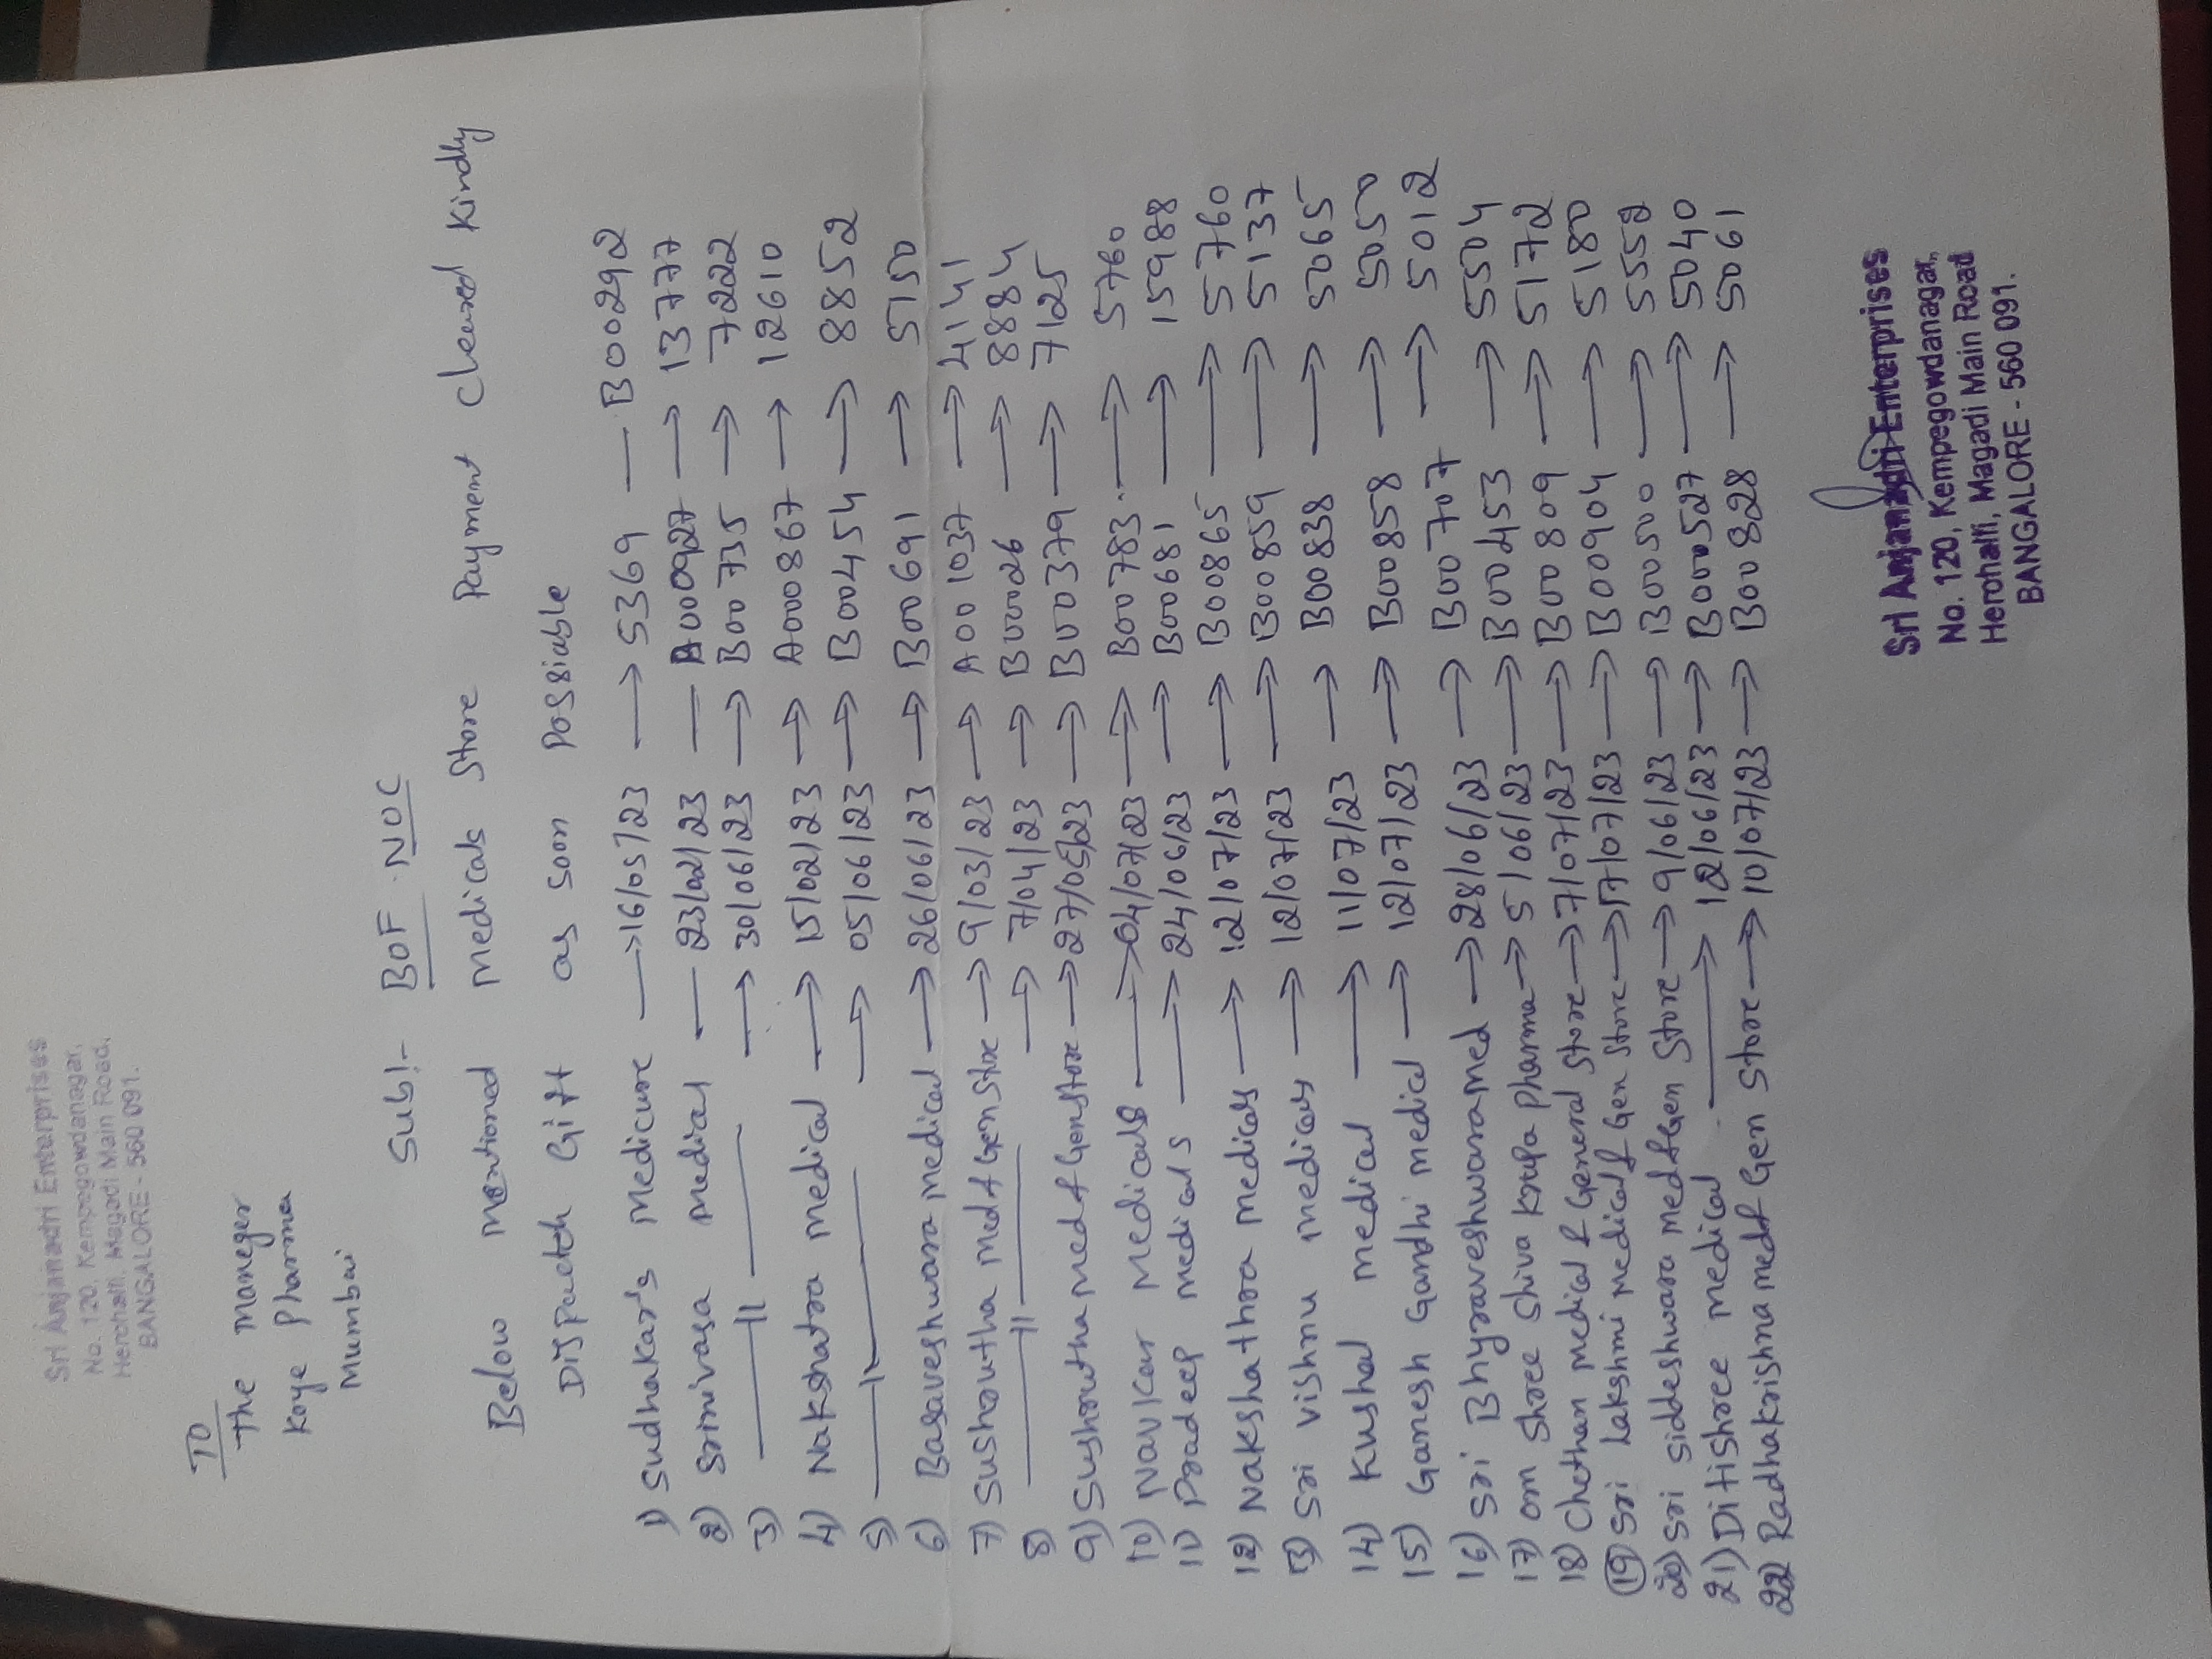 Sri Anjanadri Enterprises
No. 120, Kempegowdanagar,
Herohalli, Magadi Main Road,
BANGALORE - 560 091.
TO
The Maneger
Koye Pharma
Mumbai
Sub:- BOF NOC
Below mentioned medicals Store Payment cleared Kindly
Dispactch Gift as soon possiable
1) Sudhakar's medicure → 16/05/23 → 5369 — B00292
2) Srinivasa medical — 23/02/23 — A000927 → 13777
3) —〃— → 30/06/23 → B00735 → 7222
4) Nakshatra medical → 15/02/23 → A000867 → 12610
5) —〃— → 05/06/23 → B00454 → 8852
6) Basaveshwara medical → 26/06/23 → B00691 → 5150
7) Sushrutha med & Gen Store → 9/03/23 → A001037 → 4141
8) —〃— → 7/04/23 → B00026 → 8884
9) Sushrutha med & Gen Store → 27/05/23 → B00379 → 7125
10) Navkar medicals → 04/07/23 → B00783 → 5760
11) Pradeep medicals → 24/06/23 → B00681 → 15988
12) Nakshathra medicals → 12/07/23 → B00865 → 5760
13) Sri Vishnu medicals → 12/07/23 → B00859 → 5137
14) Kushal medical → 11/07/23 → B00838 → 5065
15) Ganesh Gandhi medical → 12/07/23 → B00858 → 5050
16) Sri Bhyraveshwara med → 28/06/23 → B00707 → 5012
17) om Shree Shiva Krupa Pharma → 5/06/23 → B00453 → 5504
18) Chethan medical & General Store → 7/07/23 → B00809 → 5172
19) Sri Lakshmi medical & Gen Store → 17/07/23 → B00904 → 5180
20) Sri Siddeshwara med & Gen Store → 9/06/23 → B00500 → 5552
21) Ditishree medical → 12/06/23 → B000527 → 5040
22 Radhakrishna med & Gen Store → 10/07/23 → B00828 → 5061
Sri Anjanadri Enterprises
No. 120, Kempegowdanagar,
Herohalli, Magadi Main Road
BANGALORE - 560 091.